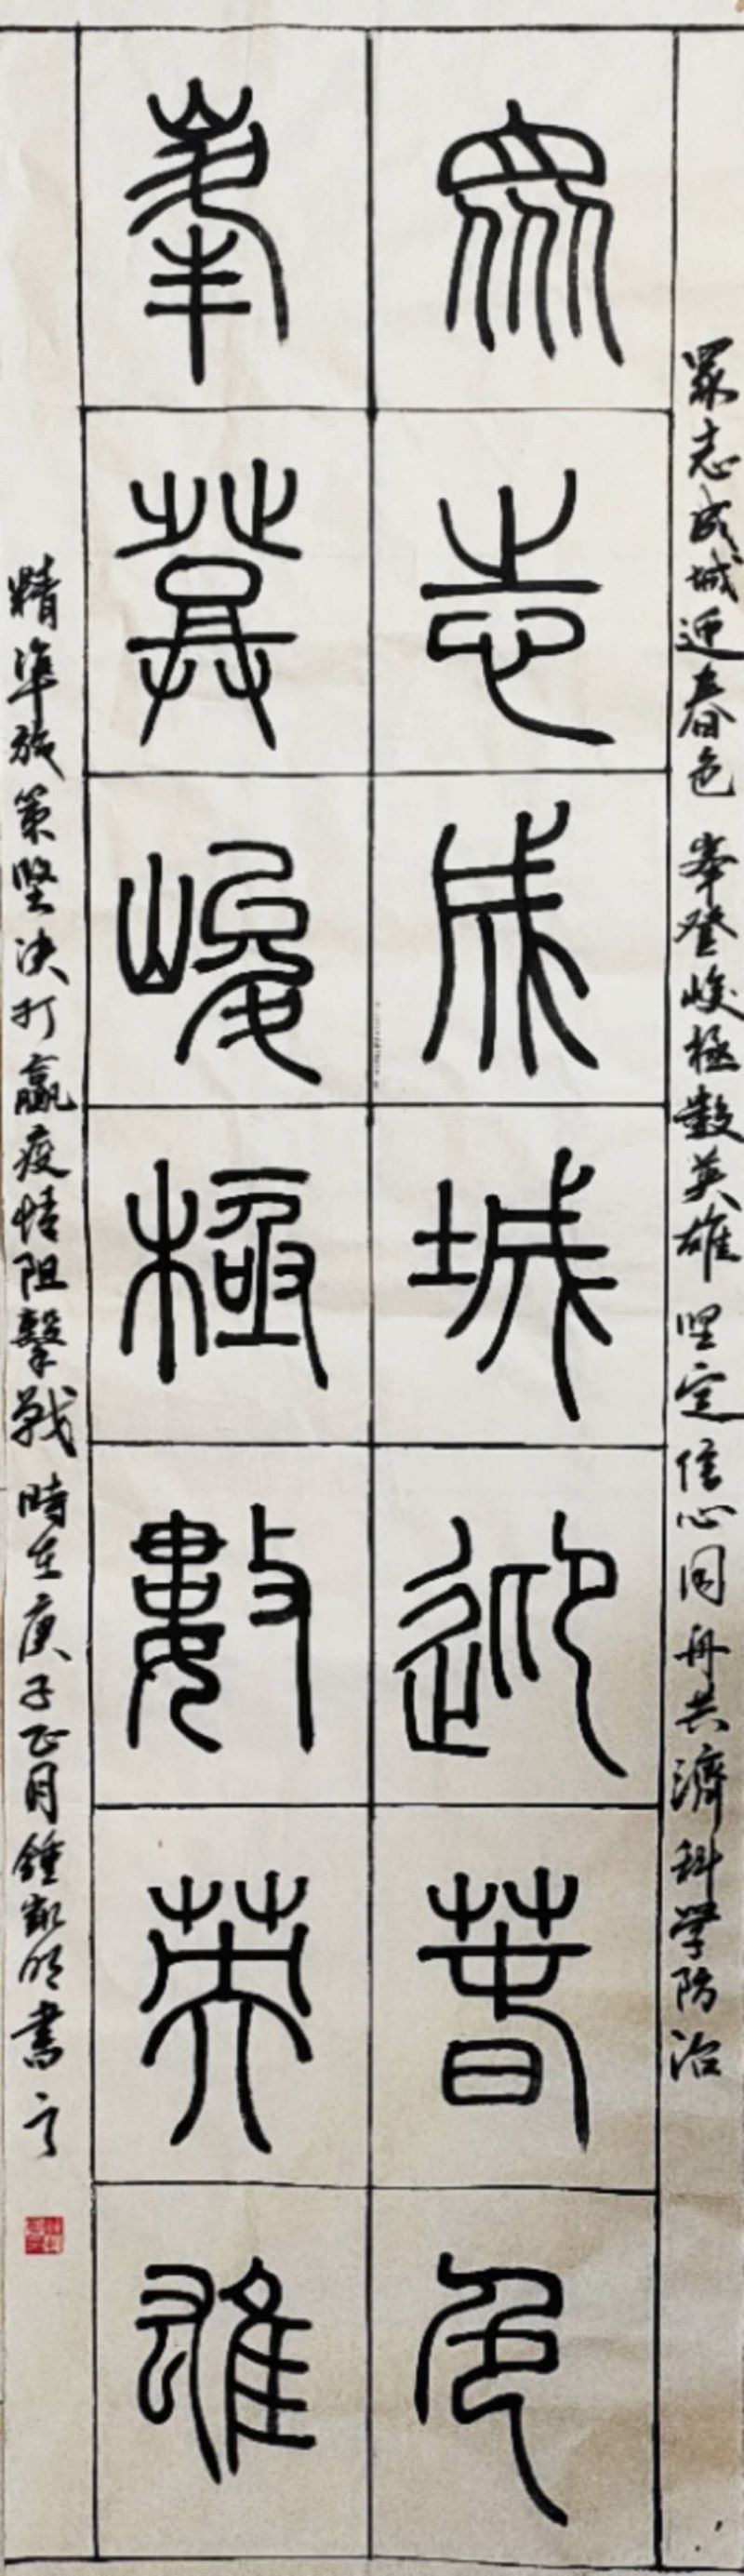 眾志成城迎春色 峯登峻極數英雄 坚定信心同舟共濟科學防治
眾志成城迎春色
峯登峻極數英雄
精準施策堅決打贏疫情阻擊戰 時在庚子正月鍾凱明書